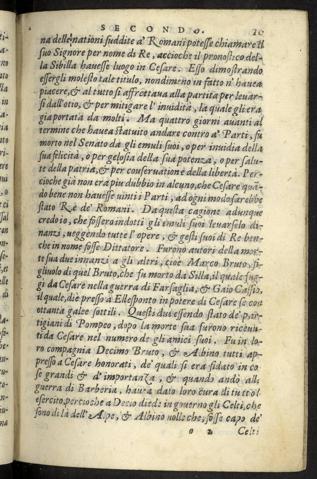 SECONDO. 20
na delle nationi suddite a' Romani potesse chiamare il
suo Signore per nome di Re, accioche il pronostico del-
la Sibilla hauesse luogo in Cesare. Esso dimostrando
essergli molesto tale titolo, nondimeno in fatto n' hauea
piacere, & al tutto si affrettaua alla partita per leuar
si dall'otio, & per mitigare l'inuidia, la quale gli era
gia portata da molti. Ma quattro giorni auanti al
termine che hauea statuito andare contro a' Parti, fu
morto nel Senato da gli emuli suoi, o per inuidia della
sua felicità, o per gelosia della sua potenza, o per salu-
te della patria, & per conseruatione della libertà. Per-
cioche già non era piu dubbio in alcuno, che Cesare quan-
do bene non hauesse uinti i Parti, ad ogni modo sarebbe
stato Re de' Romani. Da questa cagione adunque
credo io, che fossero indotti gli emuli suoi leuarselo di-
nanzi, ueggendo tutte l'opere, & gesti suoi di Re ben-
che in nome fosse Dittatore. Furono autori della mor-
te sua due innanzi a gli altri, cioè Marco Bruto, fi-
gliuolo di quel Bruto, che fu morto da Silla, il quale fug-
gì da Cesare nella guerra di Farsaglia, & Gaio Cassio,
il quale, diè presso a Ellesponto in potere di Cesare se con
ottanta galee sottili. Questi due essendo stato de' par-
tigiani di Pompeo, dopo la morte sua furono riceuu-
ti da Cesare nel numero de gli amici suoi. Fu in lo-
ro compagnia Decimo Bruto, & Albino tutti ap-
presso a Cesare honorati, de' quali si era fidato in co-
se grandi & d' importanza, & quando andò alla
guerra di Barberia, hauea dato loro cura di tutto l'
esercito, percioche a Decio diede in gouerno gli Celti, che
sono di là dell' Alpe, & Albino uolle che, fosse capo de'
o 2 Celti